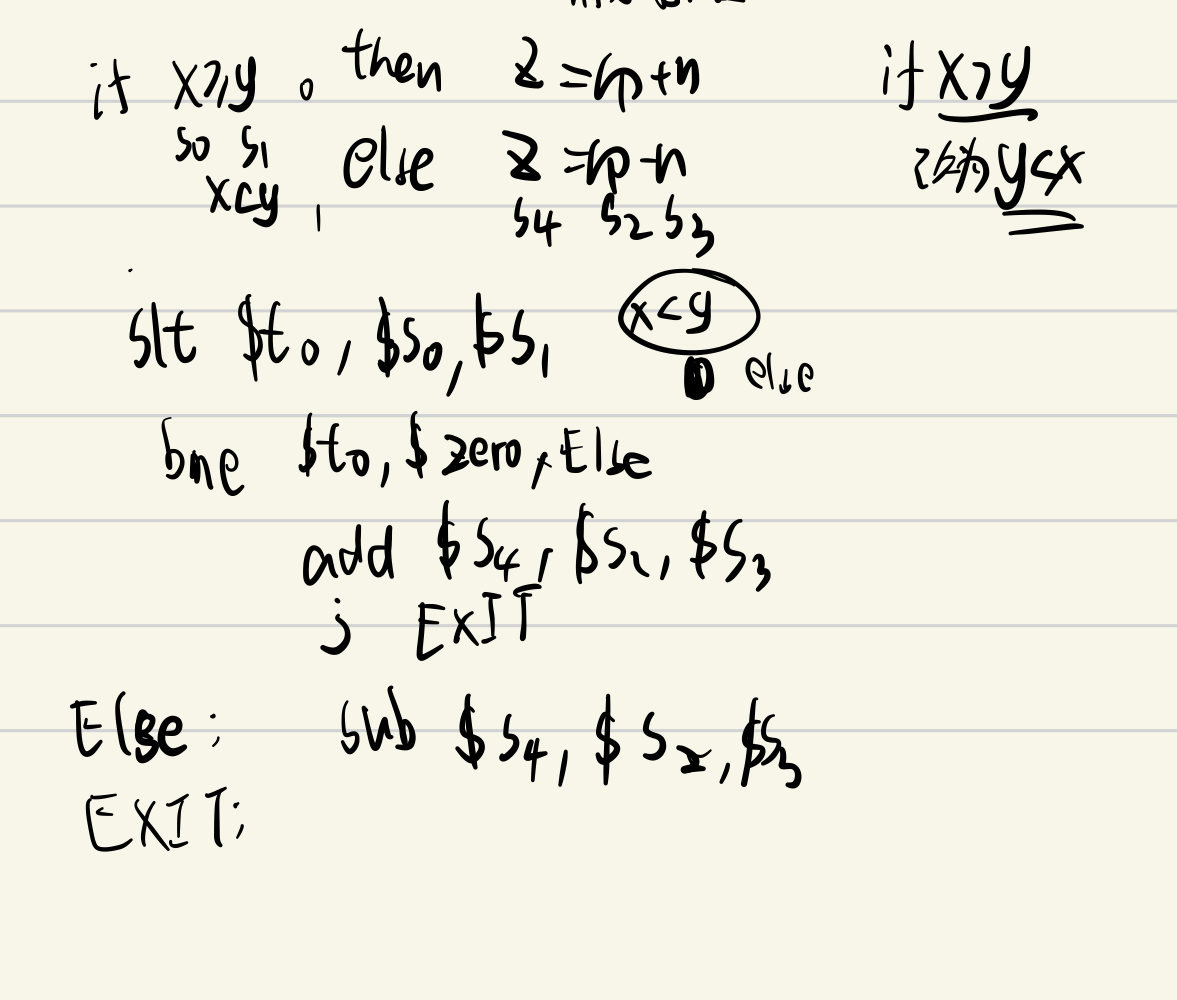 if x≥y 0 then z = p+n
s0 s1
x<y 1 else z = p-n
s4 s2 s3
if x>y
改为 y<x
slt $t0, $s0, $s1
x<y
0 else
bne $t0, $zero, Else
add $s4, $s2, $s3
j EXIT
Else: sub $s4, $s2, $s3
EXIT: